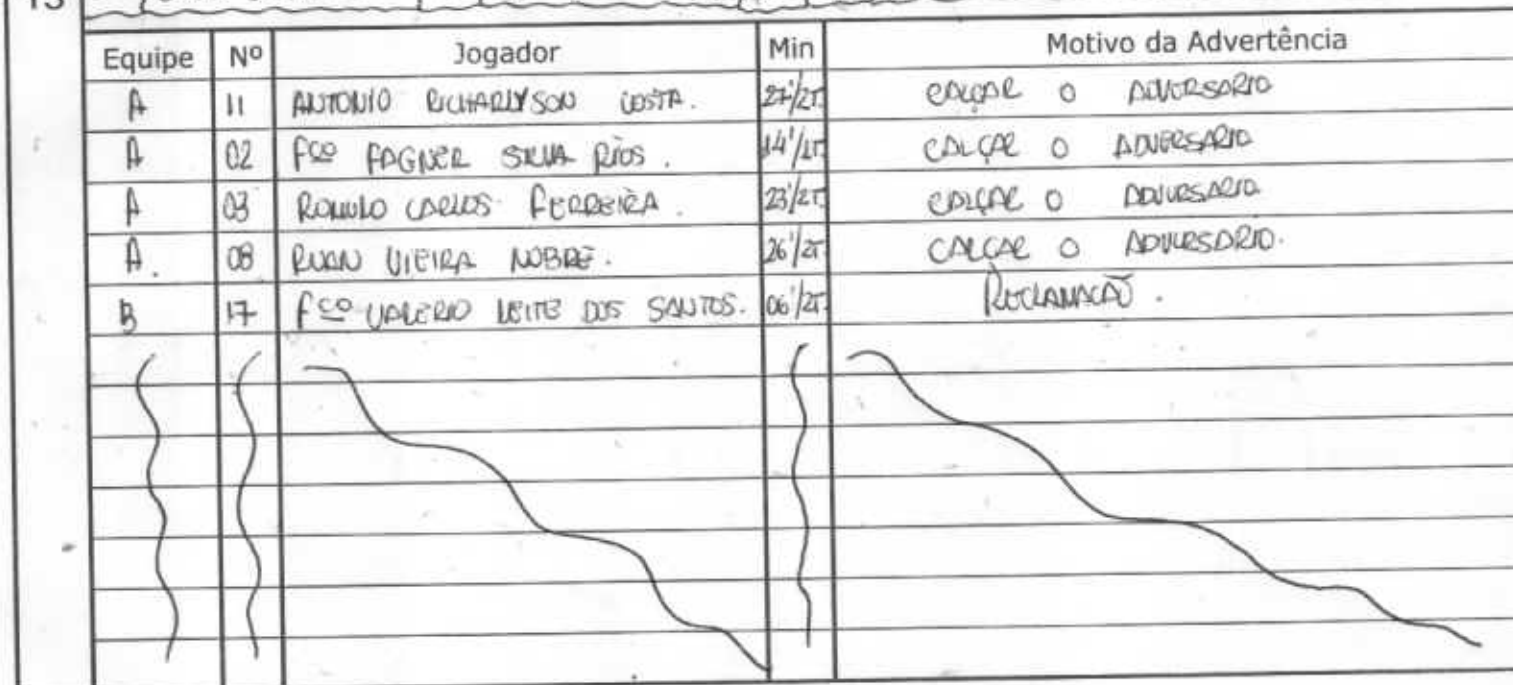 Equipe Nº Jogador Min Motivo da Advertência
A 11 ANTONIO RICHARLYSON COSTA. 27'/2T CALÇAR O ADVERSARIO
A 02 Fco FAGNER SILVA RIOS. 14'/1T CALÇAR O ADVERSARIO
A 03 ROMULO CARLOS FERREIRA. 23'/2T CALÇAR O ADVERSARIO
A. 08 RUAN VIEIRA NOBRE. 26'/2T CALÇAR O ADVERSARIO.
B 17 Fco VALERIO LEITE DOS SANTOS. 06'/2T. RECLAMAÇÃO.